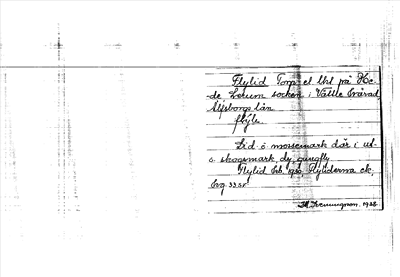 Flylid Torp el. lht på He-
de, Lerum socken i Vättle härad,
Älfsborgs län
flỳli
Lid o. mossmark där i ut-
o. skogsmark, dy, gungfly
Flylid Jrb. 1930, Flyliderna ek.
1928